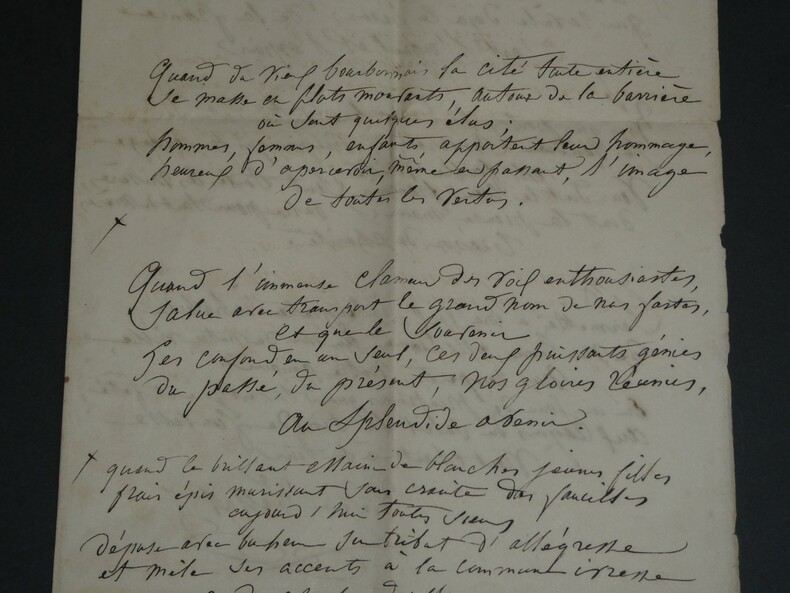 Quand du vieux bourbonnais la cité toute entière
Se masse en flots mouvants, autour de la barrière
où sont quelques élus.
hommes, femmes, enfants apportent leur hommage,
heureux d'apercevoir, même en passant, l'image
De toutes les vertus.
Quand l'immense clameur des voix enthousiastes,
Salue avec transport le grand nom de nos fastes,
et que le Souvenir
Les confond en un seul, ces deux puissants génies
du passé, du présent, nos gloires réunies,
au Splendide avenir.
quand le brillant essaim de blanches jeunes filles
frais épis murissant sans crainte des faucilles
aujourd'hui toutes sœurs
dépose avec bonheur son tribut d'allégresse
et mêle ses accents à la commune ivresse